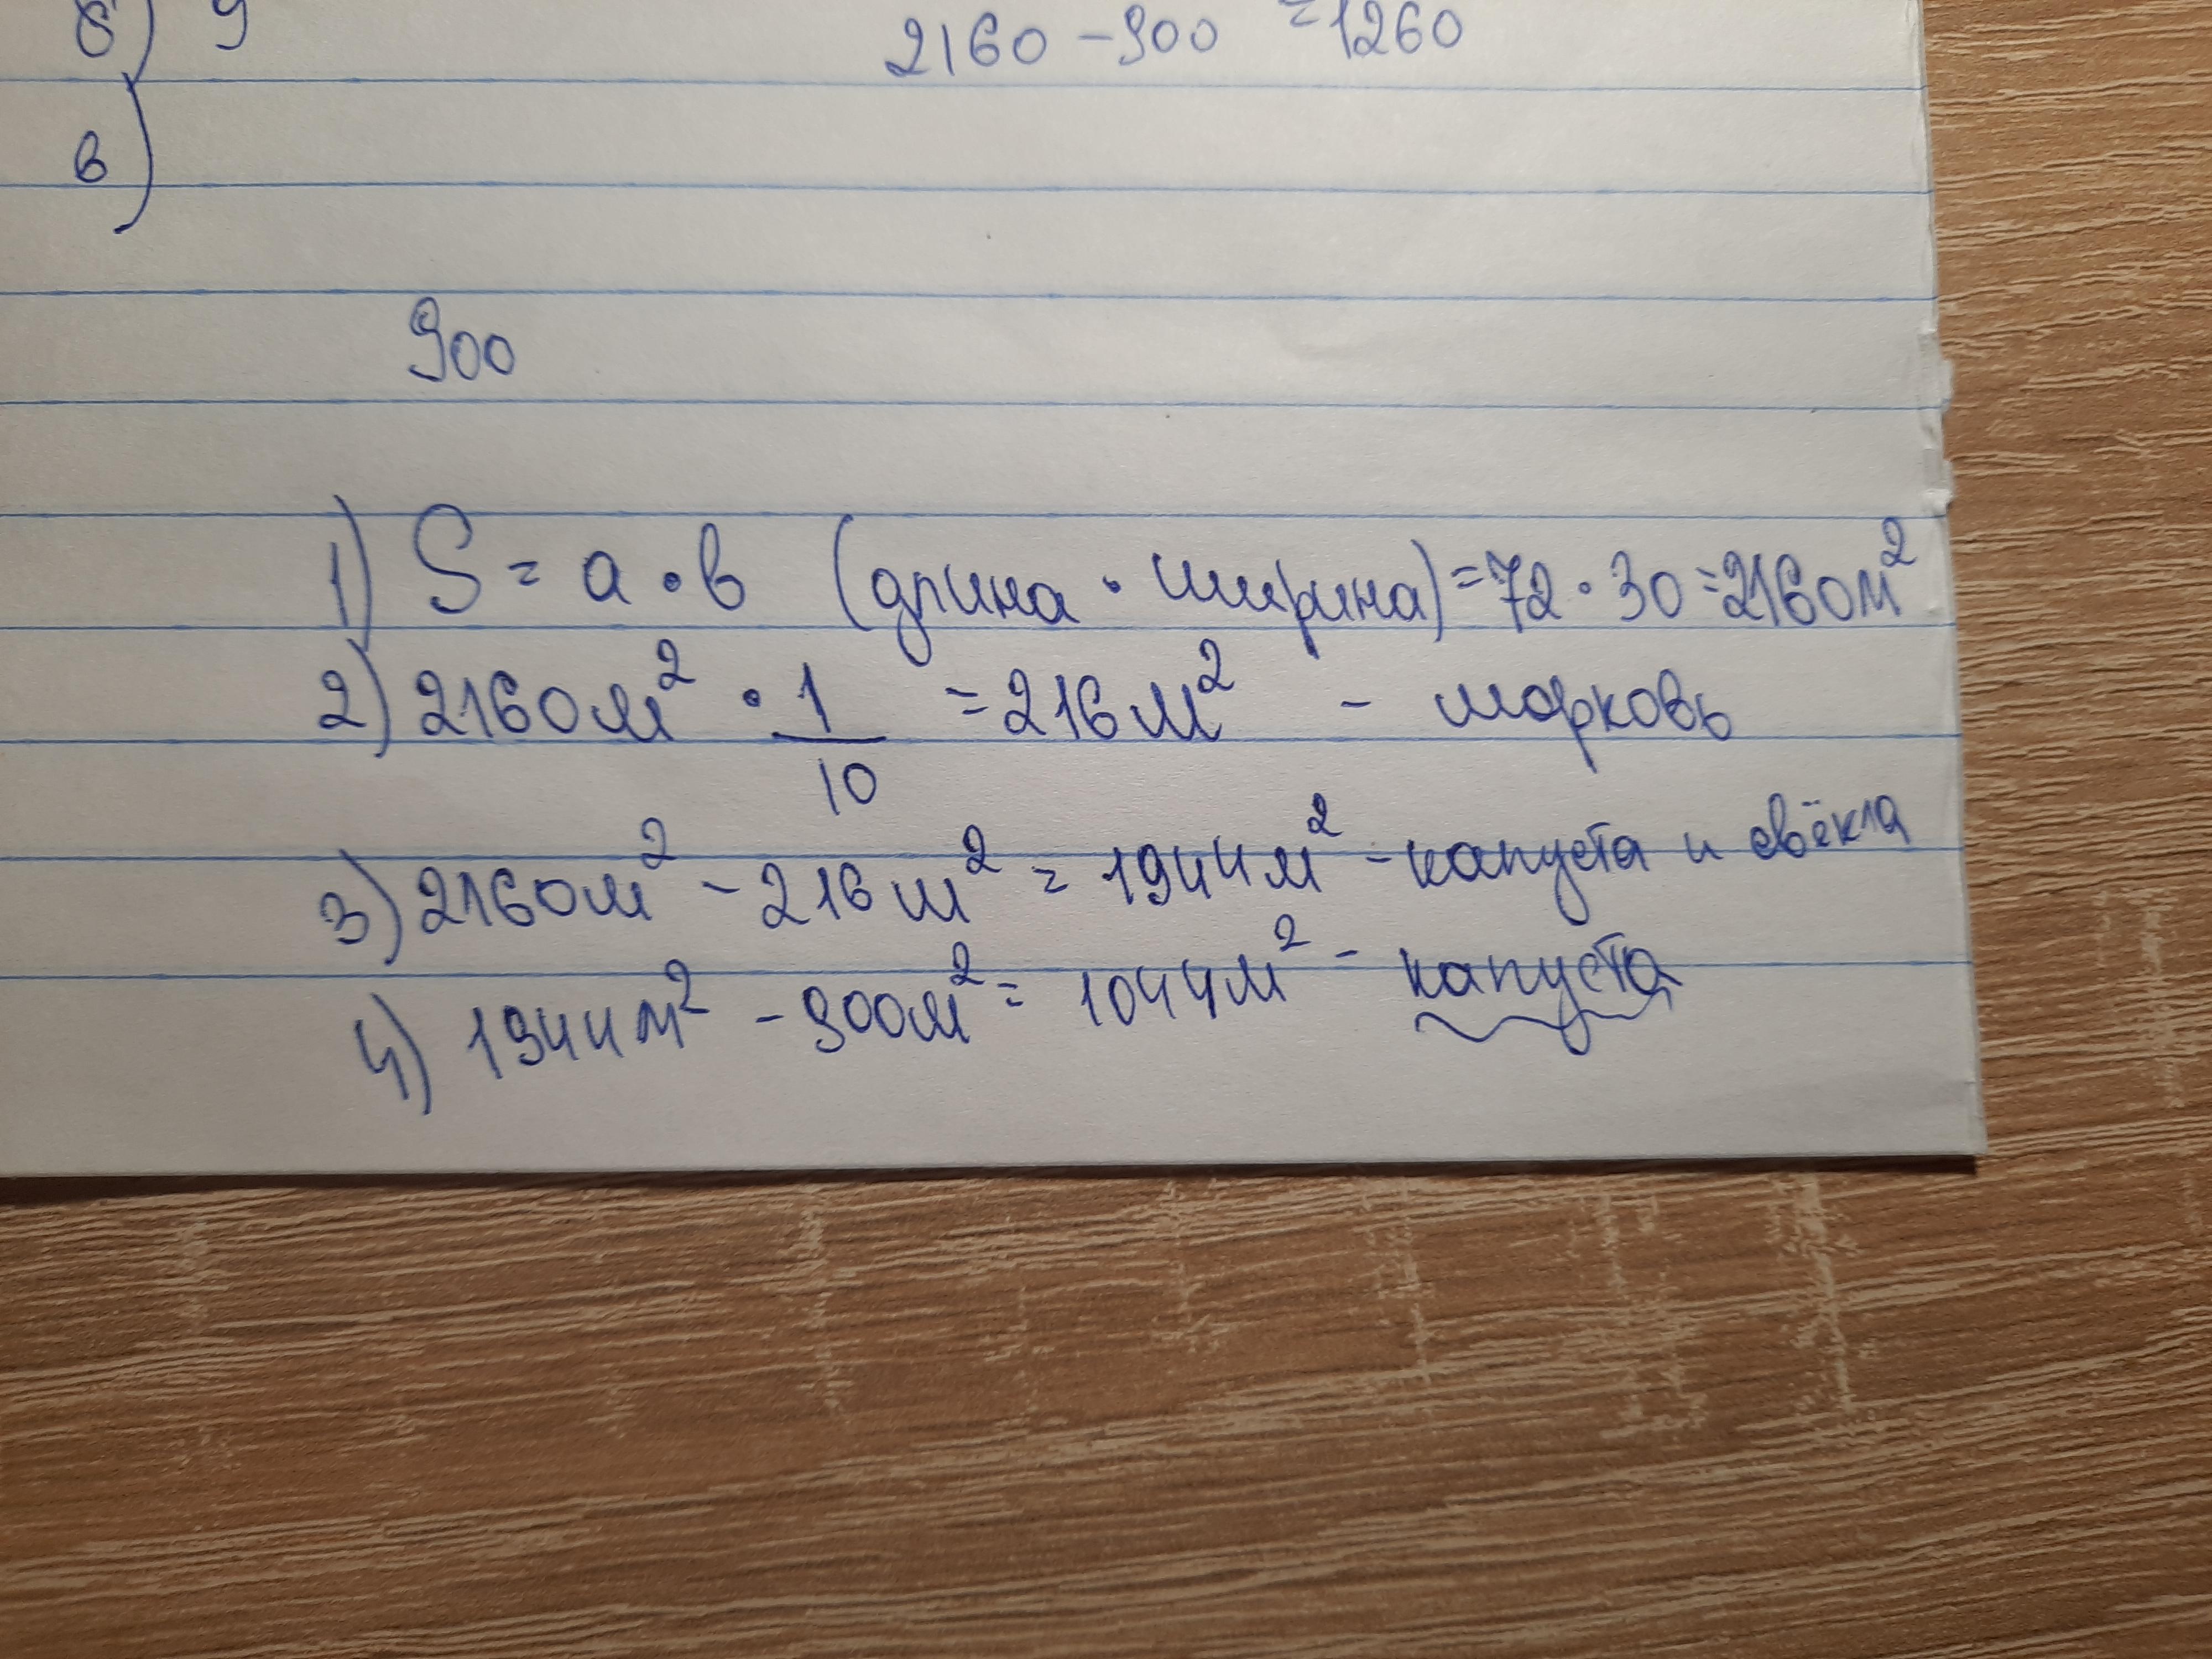 б) 9
2160 - 900 = 1260
в)
900
1) S = a · b (длина · ширина) = 72 · 30 = 2160м²
2) 2160м² · 1/10 = 216м² - морковь
3) 2160м² - 216м² = 1944м² - капуста и свёкла
4) 1944м² - 900м² = 1044м² - капуста